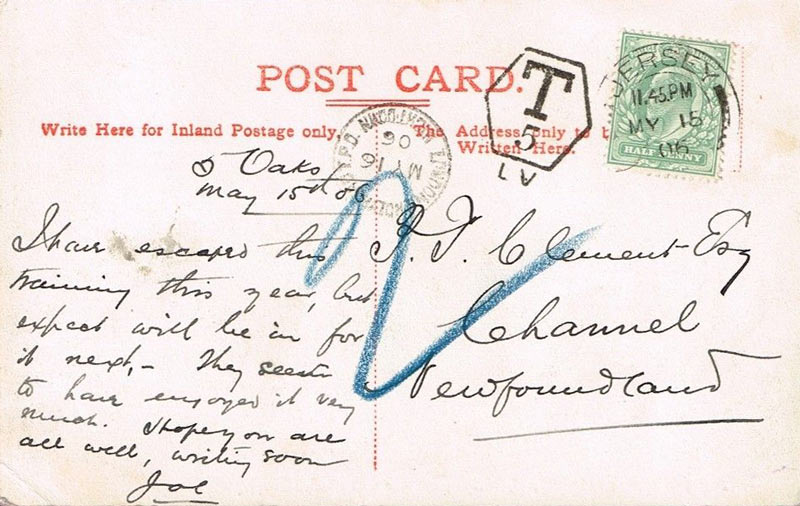 POST CARD.
Write Here for Inland Postage only.
The Address only to b
Written Here.
JERSEY
11.45.PM
MY 15
06
HALF PENNY
T
5
MY 16
06
2
5 Oaks
May 15th 06
I have escaped this
training this year, but
expect will be in for
it next,- They seem
to have enjoyed it very
much. I hope you are
all well, writing soon
Joe
P. T. Clement Esq
Channel
Newfoundland